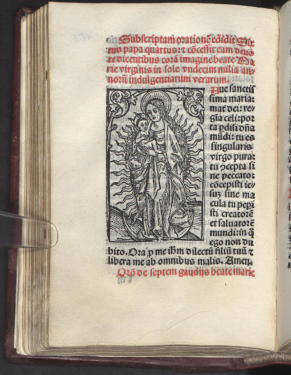 Subscriptam orationē edidit Six
tus papa quartus et cōcessit eam deuo
te dicentibus corā imagine beate Ma
rie virginis in sole vndecim milia an
norū indulgentiarum verarum.
Aue sanctis
sima maria
mater dei: re
gia celi: por
ta padisi: dña
mūdi: tu es
singularis
virgo pura:
tu ꝯcepta si
ne peccato:
cōcepisti ie
sum sine ma
cula tu pepi
sti creatorē
et saluatorē
mundi: in q̄
ego non du
bito. Ora ꝓ me iesum dilectū filiū tuū et
libera me ab omnibus malis. Amen.
Orō de septem gaudijs beate marie